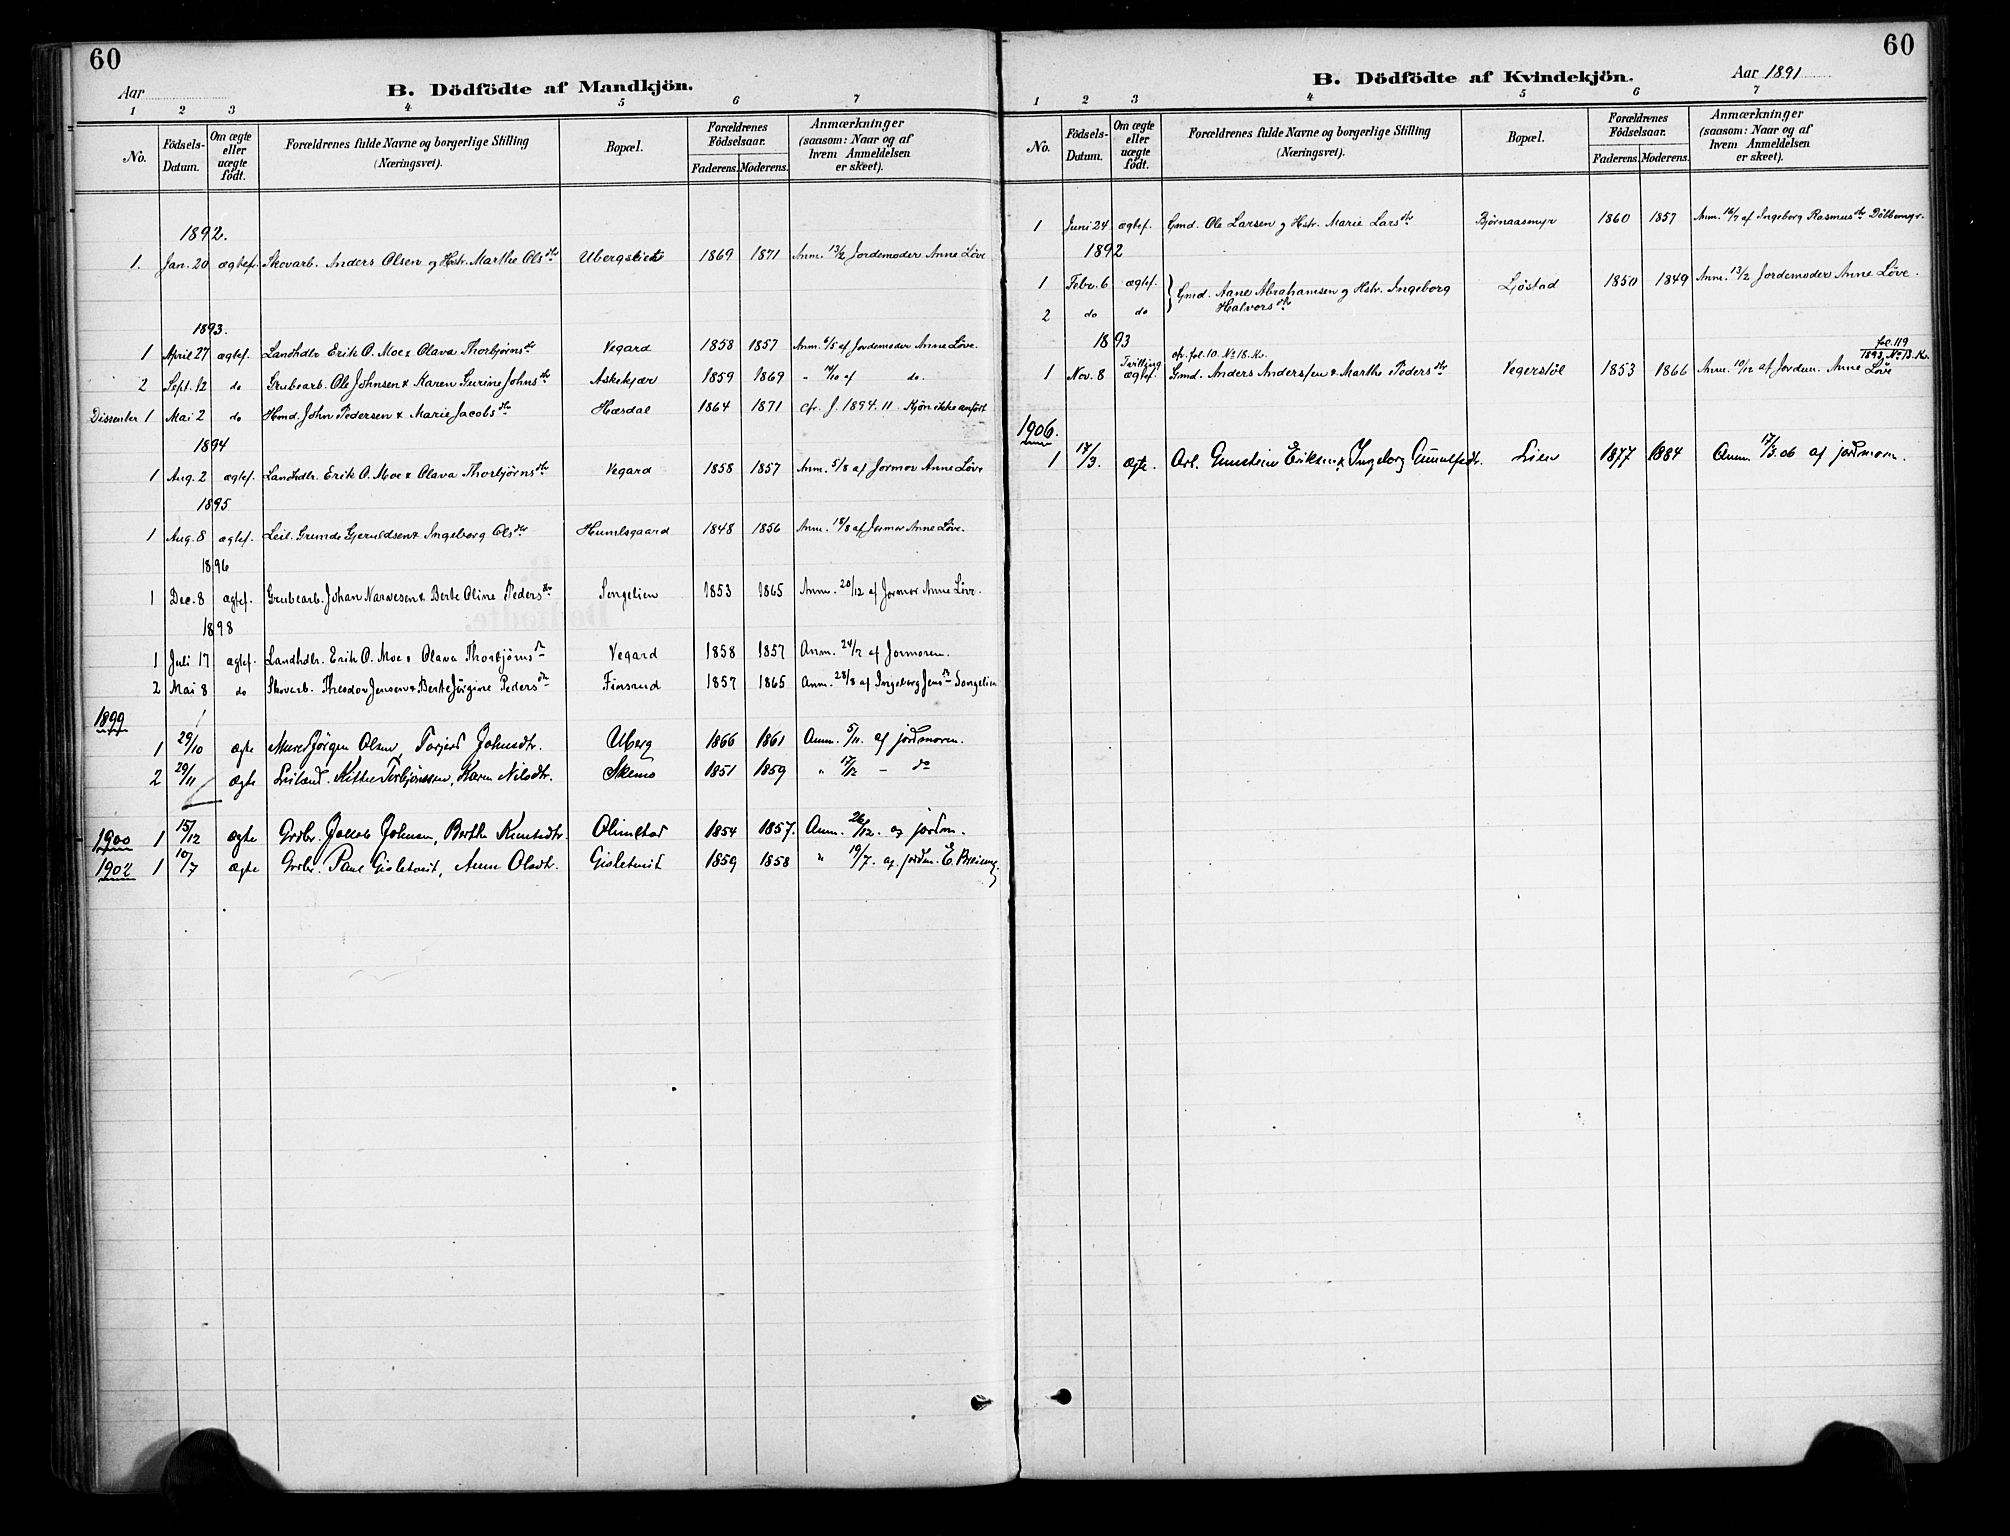 60
Aar
B. Dödfödte af Mandkjön.
1 2 3 4 5 6 7
No. Födsels-Datum. Om ægte eller uægte födt. Forældrenes fulde Navne og borgerlige Stilling (Næringsvei). Bopæl. Forældrenes Födselsaar. Faderens. Moderens. Anmærkninger (saasom: Naar og af hvem Anmeldelsen er skeet).
1892.
1. Jan. 20 ægtef. Skovarb. Anders Olsen og Hstr. Marthe Olsdtr Ubergslien 1869 1871 Anm. 13/2 Jordemoder Anne Löve
1893.
1 April 27 ægtef. Landhdlr. Erik O. Moe & Olava Thorbjørnsdtr Vegard 1858 1857 Anm. 6/5 af Jordemoder Anne Löve.
2 Sept. 12 do Grubearb. Ole Johnsen & Karen Gurine Johnsdtr Askekjær 1859 1869 " /10 af do.
Dissenter 1 Mai 2 do Hmd. John Pedersen & Marie Jacobsdtr Hæsdal 1864 1871 cfr. J. 1894. 11 Kjøn ikke anfört
1894
1 Aug. 2 ægtef. Landhdlr. Erik O. Moe & Olava Thorbjørnsdtr Vegard 1858 1857 Anm. 5/8 af Jormor Anne Löve
1895
1 Aug. 8 ægtef. Leil. Grunde Gjeruldsen & Ingeborg Olsdtr Humlsgaard 1848 1856 Anm. 18/8 af Jormor Anne Löve.
1896
1 Dec. 8 ægtef. Grubearb. Johan Narvesen & Berte Oline Pedersdtr Songelien 1853 1865 Anm. 20/12 af Jormor Anne Löve.
1898
1 Juli 17 ægtef. Landhdlr. Erik O. Moe & Olava Thorbjørnsdtr Vegard 1858 1857 Anm. 24/7 af Jormoren.
2 Mai 8 do Skovarb. Theodor Jensen & Berte Jörgine Pedersdtr Finsrud 1857 1865 Anm. 28/8 af Ingeborg Jensdtr Songelien
1899
1 29/10 ægte Murer Jörgen Olsen, Torjerd Johnsdtr. Uberg 1866 1861 Anm. 5/11. af jordmoren.
2 29/11 ægte Leiland. Kittel Torbjörnssen, Karen Nilsdtr. Skemo 1851 1859 " 17/12 – do
1900 1 15/12 ægte Grdbr. Jakob Johnsen, Berthe Knutsdtr. Olimstad 1854 1857. Anm. 26/12. af jordm.
1902 1 10/7 ægte Grdbr. Paul Gisletveit, Anne Olsdtr. Gisletveit 1859 1858 " 19/7. af jordm. E. Breiung.
60
B. Dödfödte af Kvindekjön.
Aar 1891
1 2 3 4 5 6 7
No. Födsels-Datum. Om ægte eller uægte födt. Forældrenes fulde Navne og borgerlige Stilling (Næringsvei). Bopæl. Forældrenes Födselsaar. Faderens. Moderens. Anmærkninger (saasom: Naar og af hvem Anmeldelsen er skeet).
1 Juni 24 ægtef. Gmd. Ole Larsen og Hstr. Marie Larsdtr Bjørnaasmyr 1860 1857 Anm. 16/7 af Ingeborg Rasmusdtr Dölbomyr.
1892
1 Febr. 6 ægtef. Gmd. Aane Abrahamsen og Hstr. Ingeborg Ljöstad 1850 1849 Anm. 13/2 Jordemoder Anne Löve.
2 do do Halvorsdtr
1893
cfr. fol. 10. No 18. K. fol. 119 1893, No 13. K.
1 Nov. 8 Tvilling ægtef. Gmd. Anders Anderssen & Marthe Pedersdtr Vegerstöl 1853 1866 Anm. 10/12 af Jordem. Anne Löve
1906.
1 17/3. ægte. Arb. Gunstein Eriksen & Ingeborg Gunulfsdtr. Lien 1877 1884 Anm. 17/3. 06 af jordmoren.